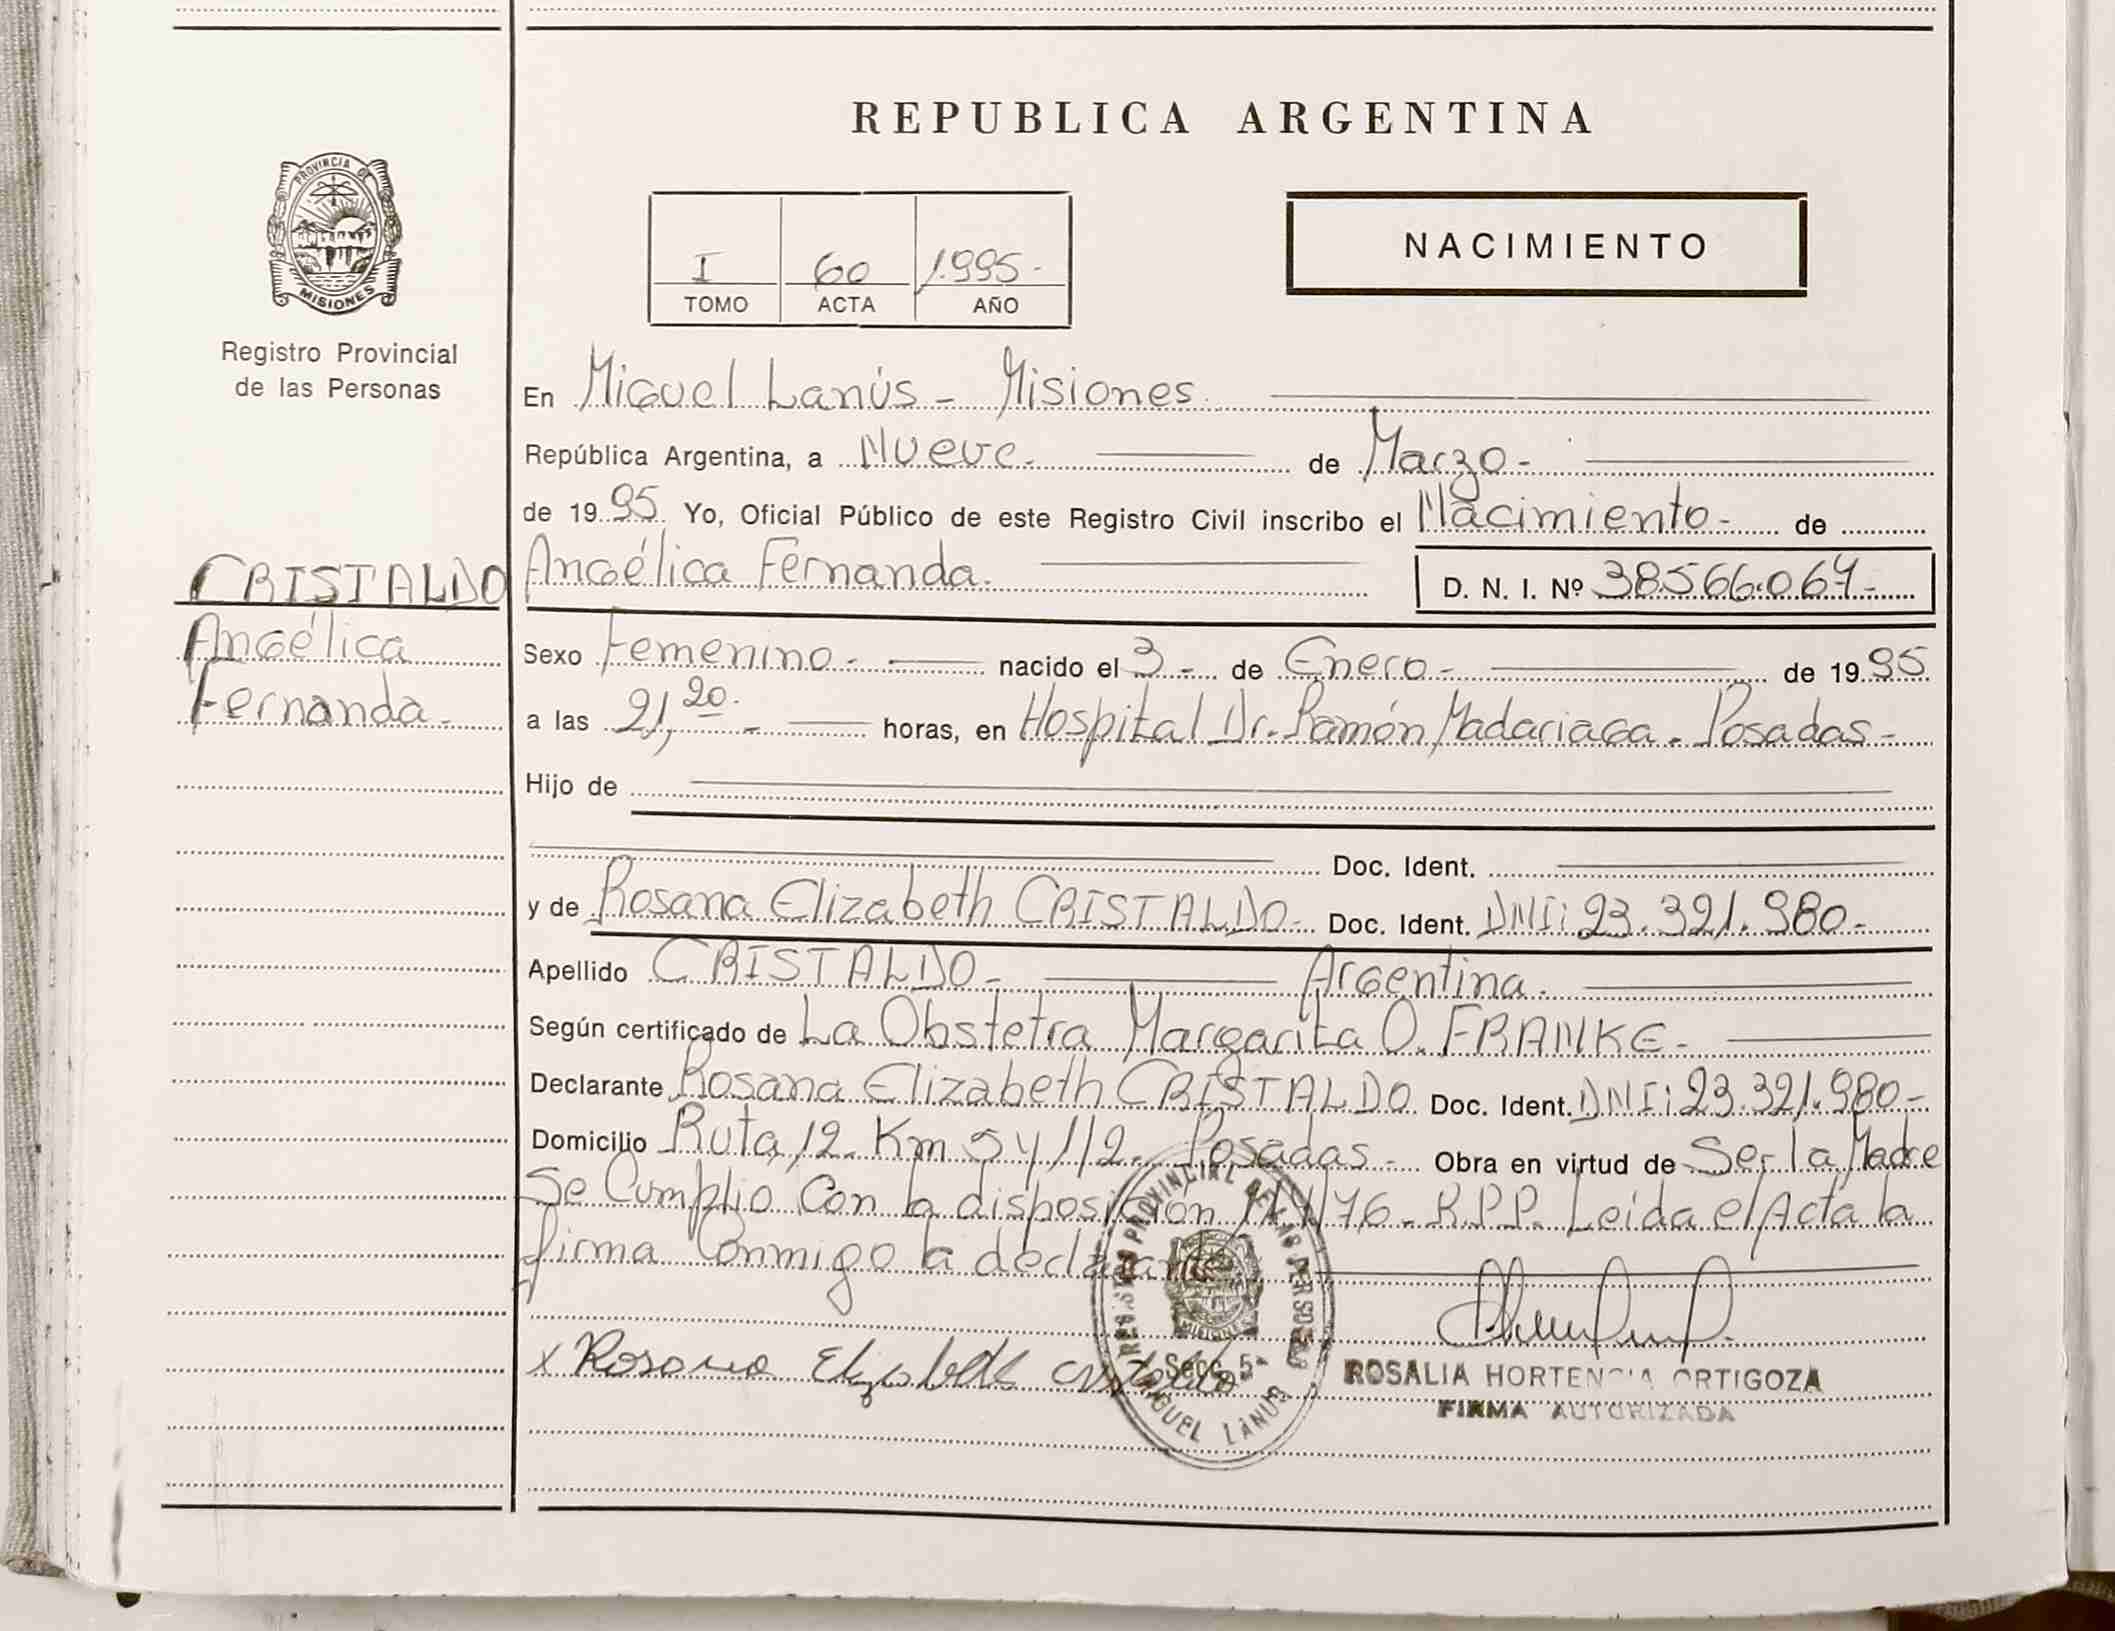 REPUBLICA ARGENTINA
PROVINCIA DE
MISIONES
Registro Provincial
de las Personas
I 60 1.995-
TOMO ACTA AÑO
NACIMIENTO
En Miguel Lanús - Misiones.
República Argentina, a Nueve. de Marzo-
de 1995 Yo, Oficial Público de este Registro Civil inscribo el Nacimiento- de
CRISTALDO
Angélica
Fernanda.-
Angélica Fernanda. D. N. I. Nº 38.566.067-
Sexo Femenino- nacido el 3- de Enero- de 1995
a las 21,20.- horas, en Hospital Dr. Ramón Madariaga. Posadas-
Hijo de
Doc. Ident.
y de Rosana Elizabeth CRISTALDO- Doc. Ident. DNI: 23.321.980-
Apellido CRISTALDO- Argentina.
Según certificado de La Obstetra Margarita O. FRANKE-
Declarante Rosana Elizabeth CRISTALDO Doc. Ident. DNI: 23.321.980-
Domicilio Ruta 12. Km 5 y 1/2. Posadas- Obra en virtud de Ser la Madre
Se Cumplio con la disposición /76- R.P.P. Leida el Acta la
firma conmigo la declarante
x Rosana Elizabeth Cristaldo
REGISTRO PROVINCIAL DE LAS PERSONAS
MISIONES
Secc. 5ª
MIGUEL LANUS
ROSALIA HORTENCIA ORTIGOZA
FIRMA AUTORIZADA